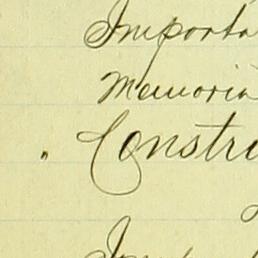 Importa
Memoria
" Constru